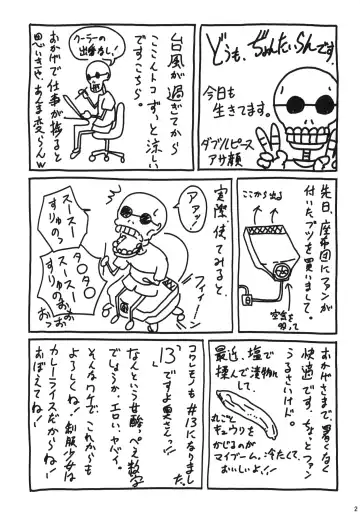 どうも、ぢょんたいらんです。
今日も
生きてます。
ダブルピース
アサ顔
台風が過ぎてから
ここんトコずっと涼しい
ですこさら。
クーラーの
出番なし!
おかげで仕事が捗ると
思いきや、あんま変らんw
先日、座布団にファンが
付いたブツを買いまして。
ここから出る
空気を
吸って
実際、使てみると、
アァッ!
フィィーン
スースー
すりゅのっ
タ〇タ〇
スースー
すりゅのおおお
おっ
おかげさまで、暑くなく
快適です、ちょっとファン
うるさいけど。
最近、塩で
揉んで漬物にして、
丸ごと
キュウリを
かじるのが
マイブーム、冷たくて
おいしいよ!!
コワレモノも#13になりました。
「13」ですよ奥さんっ!
なんという甘酸っぺえ数字
でしょうか。エロい、ヤバイ。
そんなワケで、これからも
よろしくね!制服少女は
カレーライスだからね!
おぼえてね!
2